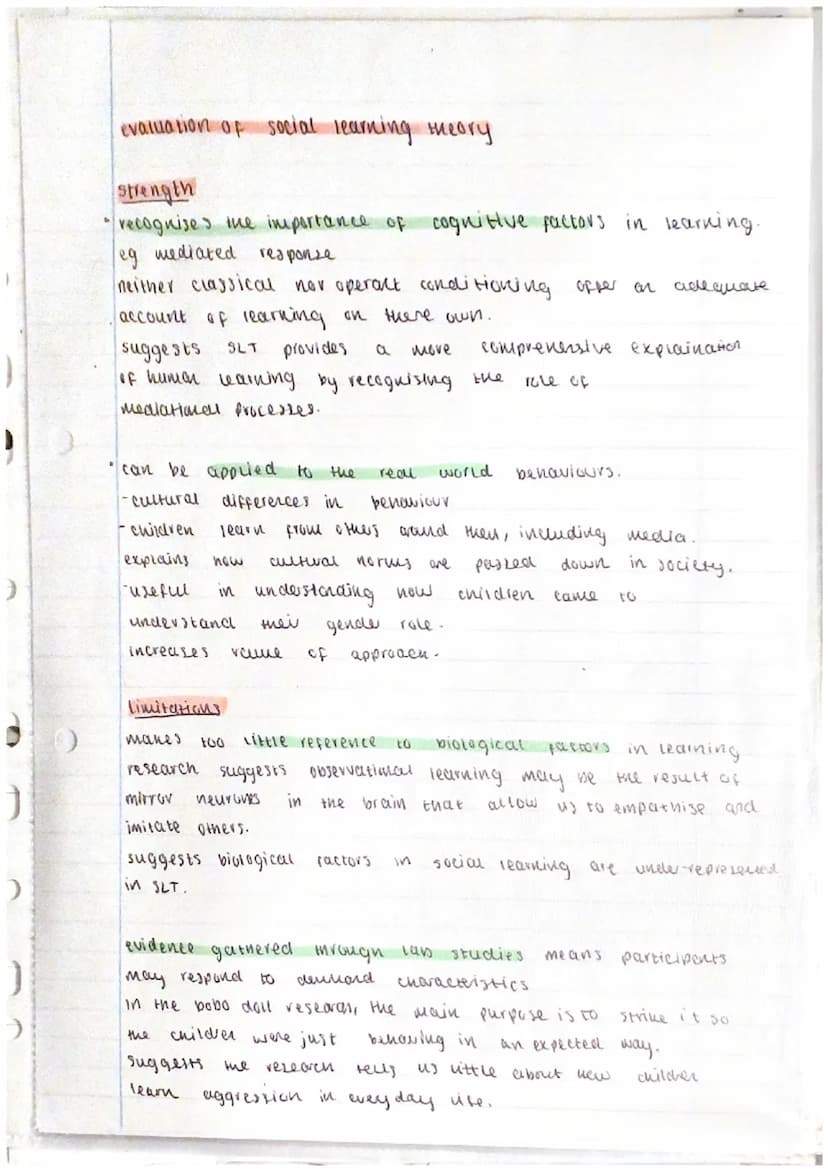 evaluation of social learning theory
strength
• recognises the importance of cognitive factors in learning.
eg mediated response
neither classical nor operant conditioning offer an adequate
account of learning on there own.
suggests SLT provides a more comprehensive explaination
of human learning by recognising the role of
mediational processes.
• can be applied to the real world behaviours.
- cultural differences in behaviour
- children learn from others around them, including media.
explains how cultural norms are passed down in society.
- useful in understanding how children came to
understand their gender role.
increases value of approach.
limitations
makes too little reference to biological factors in learning
research suggests observational learning may be the result of
mirror neurones in the brain that allow us to empathise and
imitate others.
suggests biological factors in social learning are under-represented
in SLT.
evidence gathered through lab studies means participants
may respond to demand characteristics
in the bobo doll research, the main purpose is to strike it so
the children were just behaving in an expected way.
suggests the research tells us little about how children
learn aggression in everyday life.